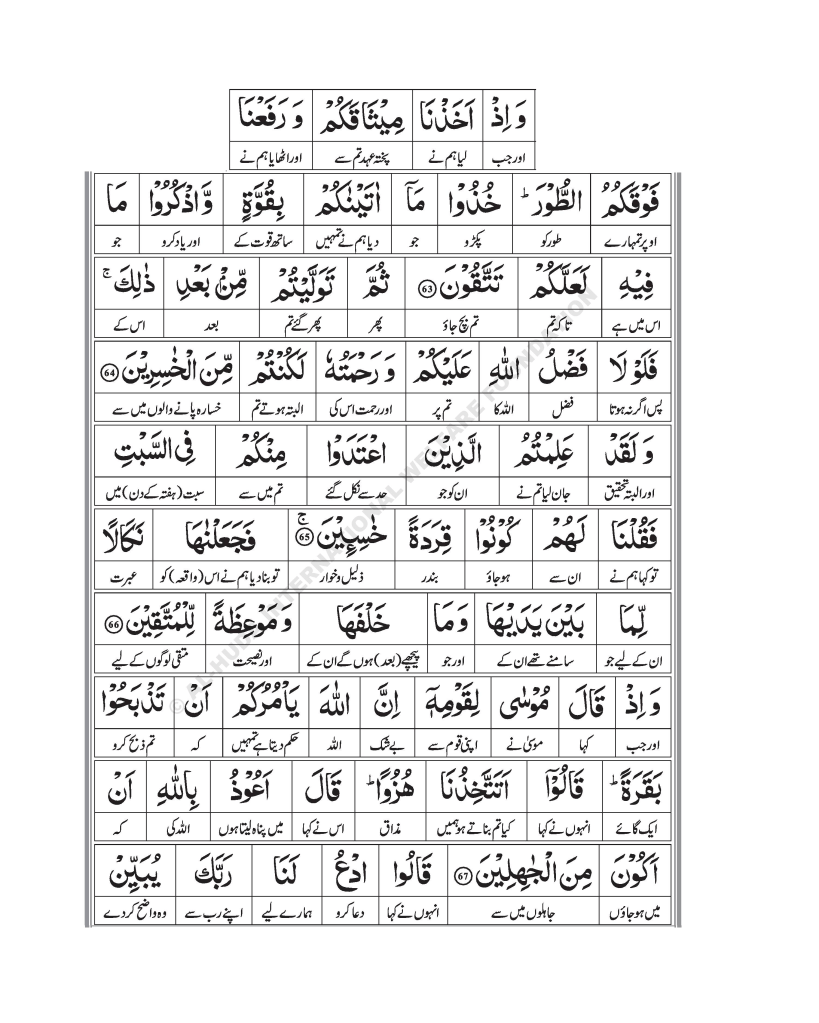 وَ اِذْ اَخَذْنَا مِيْثَاقَكُمْ وَ رَفَعْنَا
اور جب لیا ہم نے پختہ عہد تم سے اور اٹھایا ہم نے
فَوْقَكُمُ الطُّوْرَ ؕ خُذُوْا مَاۤ اٰتَيْنٰكُمْ بِقُوَّةٍ وَّاذْكُرُوْا مَا
اوپر تمہارے طور کو پکڑو جو دیا ہم نے تمہیں ساتھ قوت کے اور یاد کرو جو
فِيْهِ لَعَلَّكُمْ تَتَّقُوْنَ 63 ثُمَّ تَوَلَّيْتُمْ مِّنْۢ بَعْدِ ذٰلِكَ ۚ
اس میں ہے تاکہ تم تم بچ جاؤ پھر پھر گئے تم بعد اس کے
فَلَوْ لَا فَضْلُ اللّٰهِ عَلَيْكُمْ وَ رَحْمَتُهٗ لَكُنْتُمْ مِّنَ الْخٰسِرِيْنَ 64
پس اگر نہ ہوتا فضل اللہ کا تم پر اور رحمت اس کی البتہ ہوتے تم خسارہ پانے والوں میں سے
وَ لَقَدْ عَلِمْتُمُ الَّذِيْنَ اعْتَدَوْا مِنْكُمْ فِى السَّبْتِ
اور البتہ تحقیق جان لیا تم نے ان کو جو حد سے نکل گئے تم میں سے سبت (ہفتہ کے دن) میں
فَقُلْنَا لَهُمْ كُوْنُوْا قِرَدَةً خٰسِـِٕيْنَ ۚ 65 فَجَعَلْنٰهَا نَكَالًا
تو کہا ہم نے ان سے ہو جاؤ بندر ذلیل و خوار تو بنا دیا ہم نے اس (واقعہ) کو عبرت
لِّمَا بَيْنَ يَدَيْهَا وَ مَا خَلْفَهَا وَ مَوْعِظَةً لِّلْمُتَّقِيْنَ 66
ان کے لیے جو سامنے تھے ان کے اور جو پیچھے (بعد) ہوں گے ان کے اور نصیحت متقی لوگوں کے لیے
وَ اِذْ قَالَ مُوْسٰى لِقَوْمِهٖۤ اِنَّ اللّٰهَ يَاْمُرُكُمْ اَنْ تَذْبَحُوْا
اور جب کہا موسیٰ نے اپنی قوم سے بے شک اللہ حکم دیتا ہے تمہیں کہ تم ذبح کرو
بَقَرَةً ؕ قَالُوْۤا اَتَتَّخِذُنَا هُزُوًا ؕ قَالَ اَعُوْذُ بِاللّٰهِ اَنْ
ایک گائے انہوں نے کہا کیا تم بناتے ہو ہمیں مذاق اس نے کہا میں پناہ لیتا ہوں اللہ کی کہ
اَكُوْنَ مِنَ الْجٰهِلِيْنَ 67 قَالُوا ادْعُ لَنَا رَبَّكَ يُبَيِّنْ
میں ہو جاؤں جاہلوں میں سے انہوں نے کہا دعا کرو ہمارے لیے اپنے رب سے وہ واضح کر دے
© AL-HUDA INTERNATIONAL WELFARE FOUNDATION